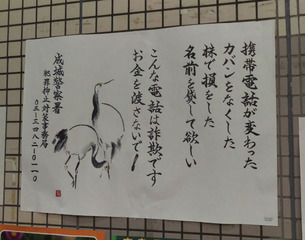 携帯電話が変わった
カバンをなくした
株で損をした
名前を貸して欲しい
こんな電話は詐欺です
お金を渡さないで!
成城警察署
犯罪抑止対策事務局
〇三-三四八二-〇一一〇